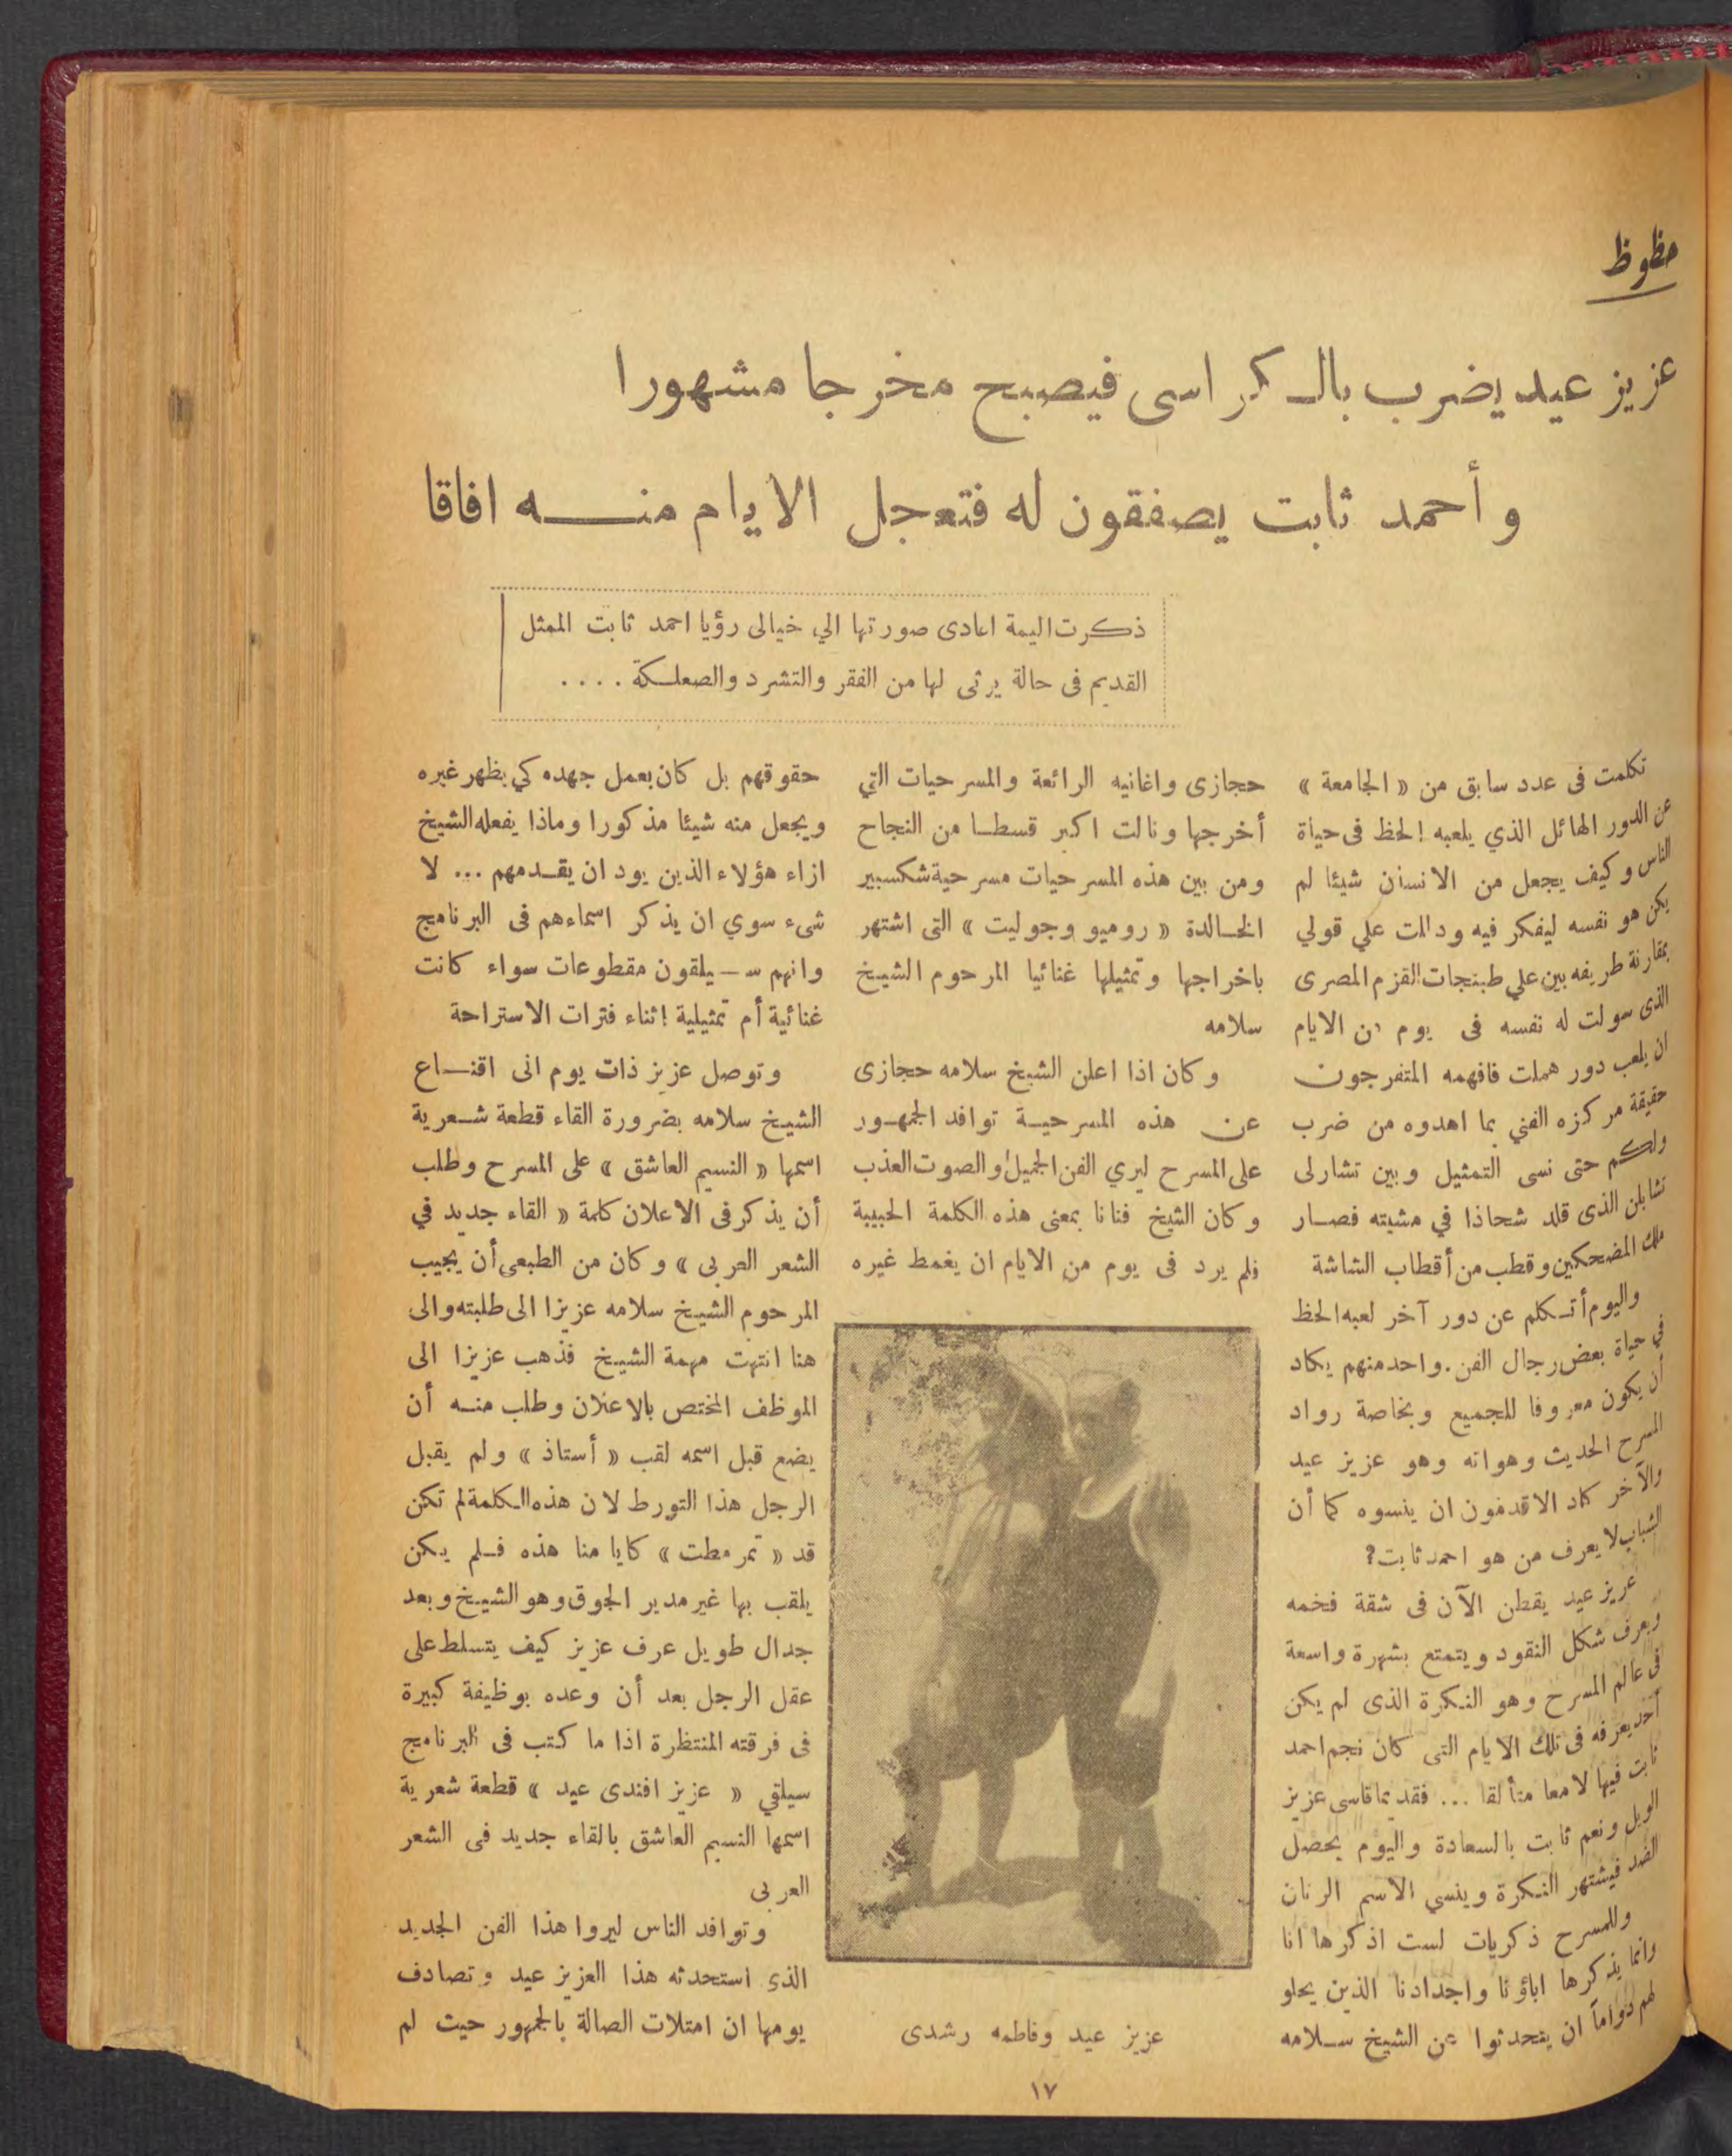 حظوظ
عزيز عيد يضرب بالكراسى فيصبح مخرجا مشهورا
وأحمد ثابت يصفقون له فتعجل الايام منه افاقا
ذكرت اليمة اعادى صورتها الي خيالى رؤيا احمد ثابت الممثل
القديم فى حالة يرثى لها من الفقر والتشرد والصعلكة . . . .
تكلمت فى عدد سابق من « الجامعة »
عن الدور الهائل الذي يلعبه الحظ فى حياة
الناس وكيف يجعل من الانسان شيئا لم
يكن هو نفسه ليفكر فيه ودالت علي قولي
بمقارنة طريفه بين علي طبنجات القزم المصرى
الذى سولت له نفسه فى يوم من الايام
ان يلعب دور هملت فافهمه المتفرجون
حقيقة مركزه الفني بما اهدوه من ضرب
ولكم حتى نسى التمثيل وبين تشارلى
تشابلن الذى قلد شحاذا في مشيته فصار
ملك المضحكين وقطب من أقطاب الشاشة
واليوم أتكلم عن دور آخر لعبه الحظ
في حياة بعض رجال الفن . واحد منهم يكاد
أن يكون معروفا للجميع وبخاصة رواد
المسرح الحديث وهواته وهو عزيز عيد
والآخر كاد الاقدمون ان ينسوه كما أن
الشباب لا يعرف من هو احمد ثابت ؟
عزيز عيد يقطن الآن فى شقة فخمه
ويعرف شكل النقود ويتمتع بشهرة واسعة
فى عالم المسرح وهو النكرة الذى لم يكن
أحد يعرفه فى تلك الايام التى كان نجم احمد
ثابت فيها لامعا متألقا ... فقديما قاسى عزيز
الويل ونعم ثابت بالسعادة واليوم يحصل
الضد فيشتهر النكرة وينسي الاسم الرنان
وللمسرح ذكريات لست اذكرها انا
وانما يذكرها اباؤنا واجدادنا الذين يحلو
لهم دواماً ان يتحدثوا عن الشيخ سلامه
حجازى واغانيه الرائعة والمسرحيات التي
أخرجها ونالت اكبر قسطا من النجاح
ومن بين هذه المسرحيات مسرحية شكسبير
الخالدة « روميو وجوليت » التى اشتهر
باخراجها وتمثيلها غنائيا المرحوم الشيخ
سلامه
وكان اذا اعلن الشيخ سلامه حجازى
عن هذه المسرحية توافد الجمهور
على المسرح ليري الفن الجميل والصوت العذب
وكان الشيخ فنانا بمعنى هذه الكلمة الحبيبة
فلم يرد فى يوم من الايام ان يغمط غيره
عزيز عيد وفاطمه رشدى
حقوقهم بل كان يعمل جهده كي يظهر غيره
ويجعل منه شيئا مذكورا وماذا يفعله الشيخ
ازاء هؤلاء الذين يود ان يقدمهم ... لا
شىء سوي ان يذكر اسماءهم فى البرنامج
وانهم سـ يلقون مقطوعات سواء كانت
غنائية أم تمثيلية اثناء فترات الاستراحة
وتوصل عزيز ذات يوم انى اقناع
الشيخ سلامه بضرورة القاء قطعة شعرية
اسمها « النسيم العاشق » على المسرح وطلب
أن يذكر فى الاعلان كلمة « القاء جديد في
الشعر العربى » وكان من الطبعى أن يجيب
المرحوم الشيخ سلامه عزيزا الى طلبته والى
هنا انتهت مهمة الشيخ فذهب عزيزا الى
الموظف المختص بالاعلان وطلب منه أن
يضع قبل اسمه لقب « أستاذ » ولم يقبل
الرجل هذا التورط لان هذه الكلمة لم تكن
قد « تمرمطت » كايامنا هذه فلم يكن
يلقب بها غير مدير الجوق وهو الشيخ وبعد
جدال طويل عرف عزيز كيف يتسلط على
عقل الرجل بعد أن وعده بوظيفة كبيرة
فى فرقته المنتظرة اذا ما كتب فى البرنامج
سيلقي « عزيز افندى عيد » قطعة شعرية
اسمها النسيم العاشق بالقاء جديد فى الشعر
العربى
وتوافد الناس ليروا هذا الفن الجديد
الذى استحدثه هذا العزيز عيد وتصادف
يومها ان امتلات الصالة بالجمهور حيث لم
١٧